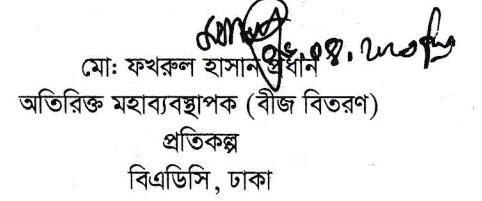 মো: ফখরুল হাসান প্রধান
অতিরিক্ত মহাব্যবস্থাপক (বীজ বিতরণ)
প্রতিকল্প
বিএডিসি, ঢাকা